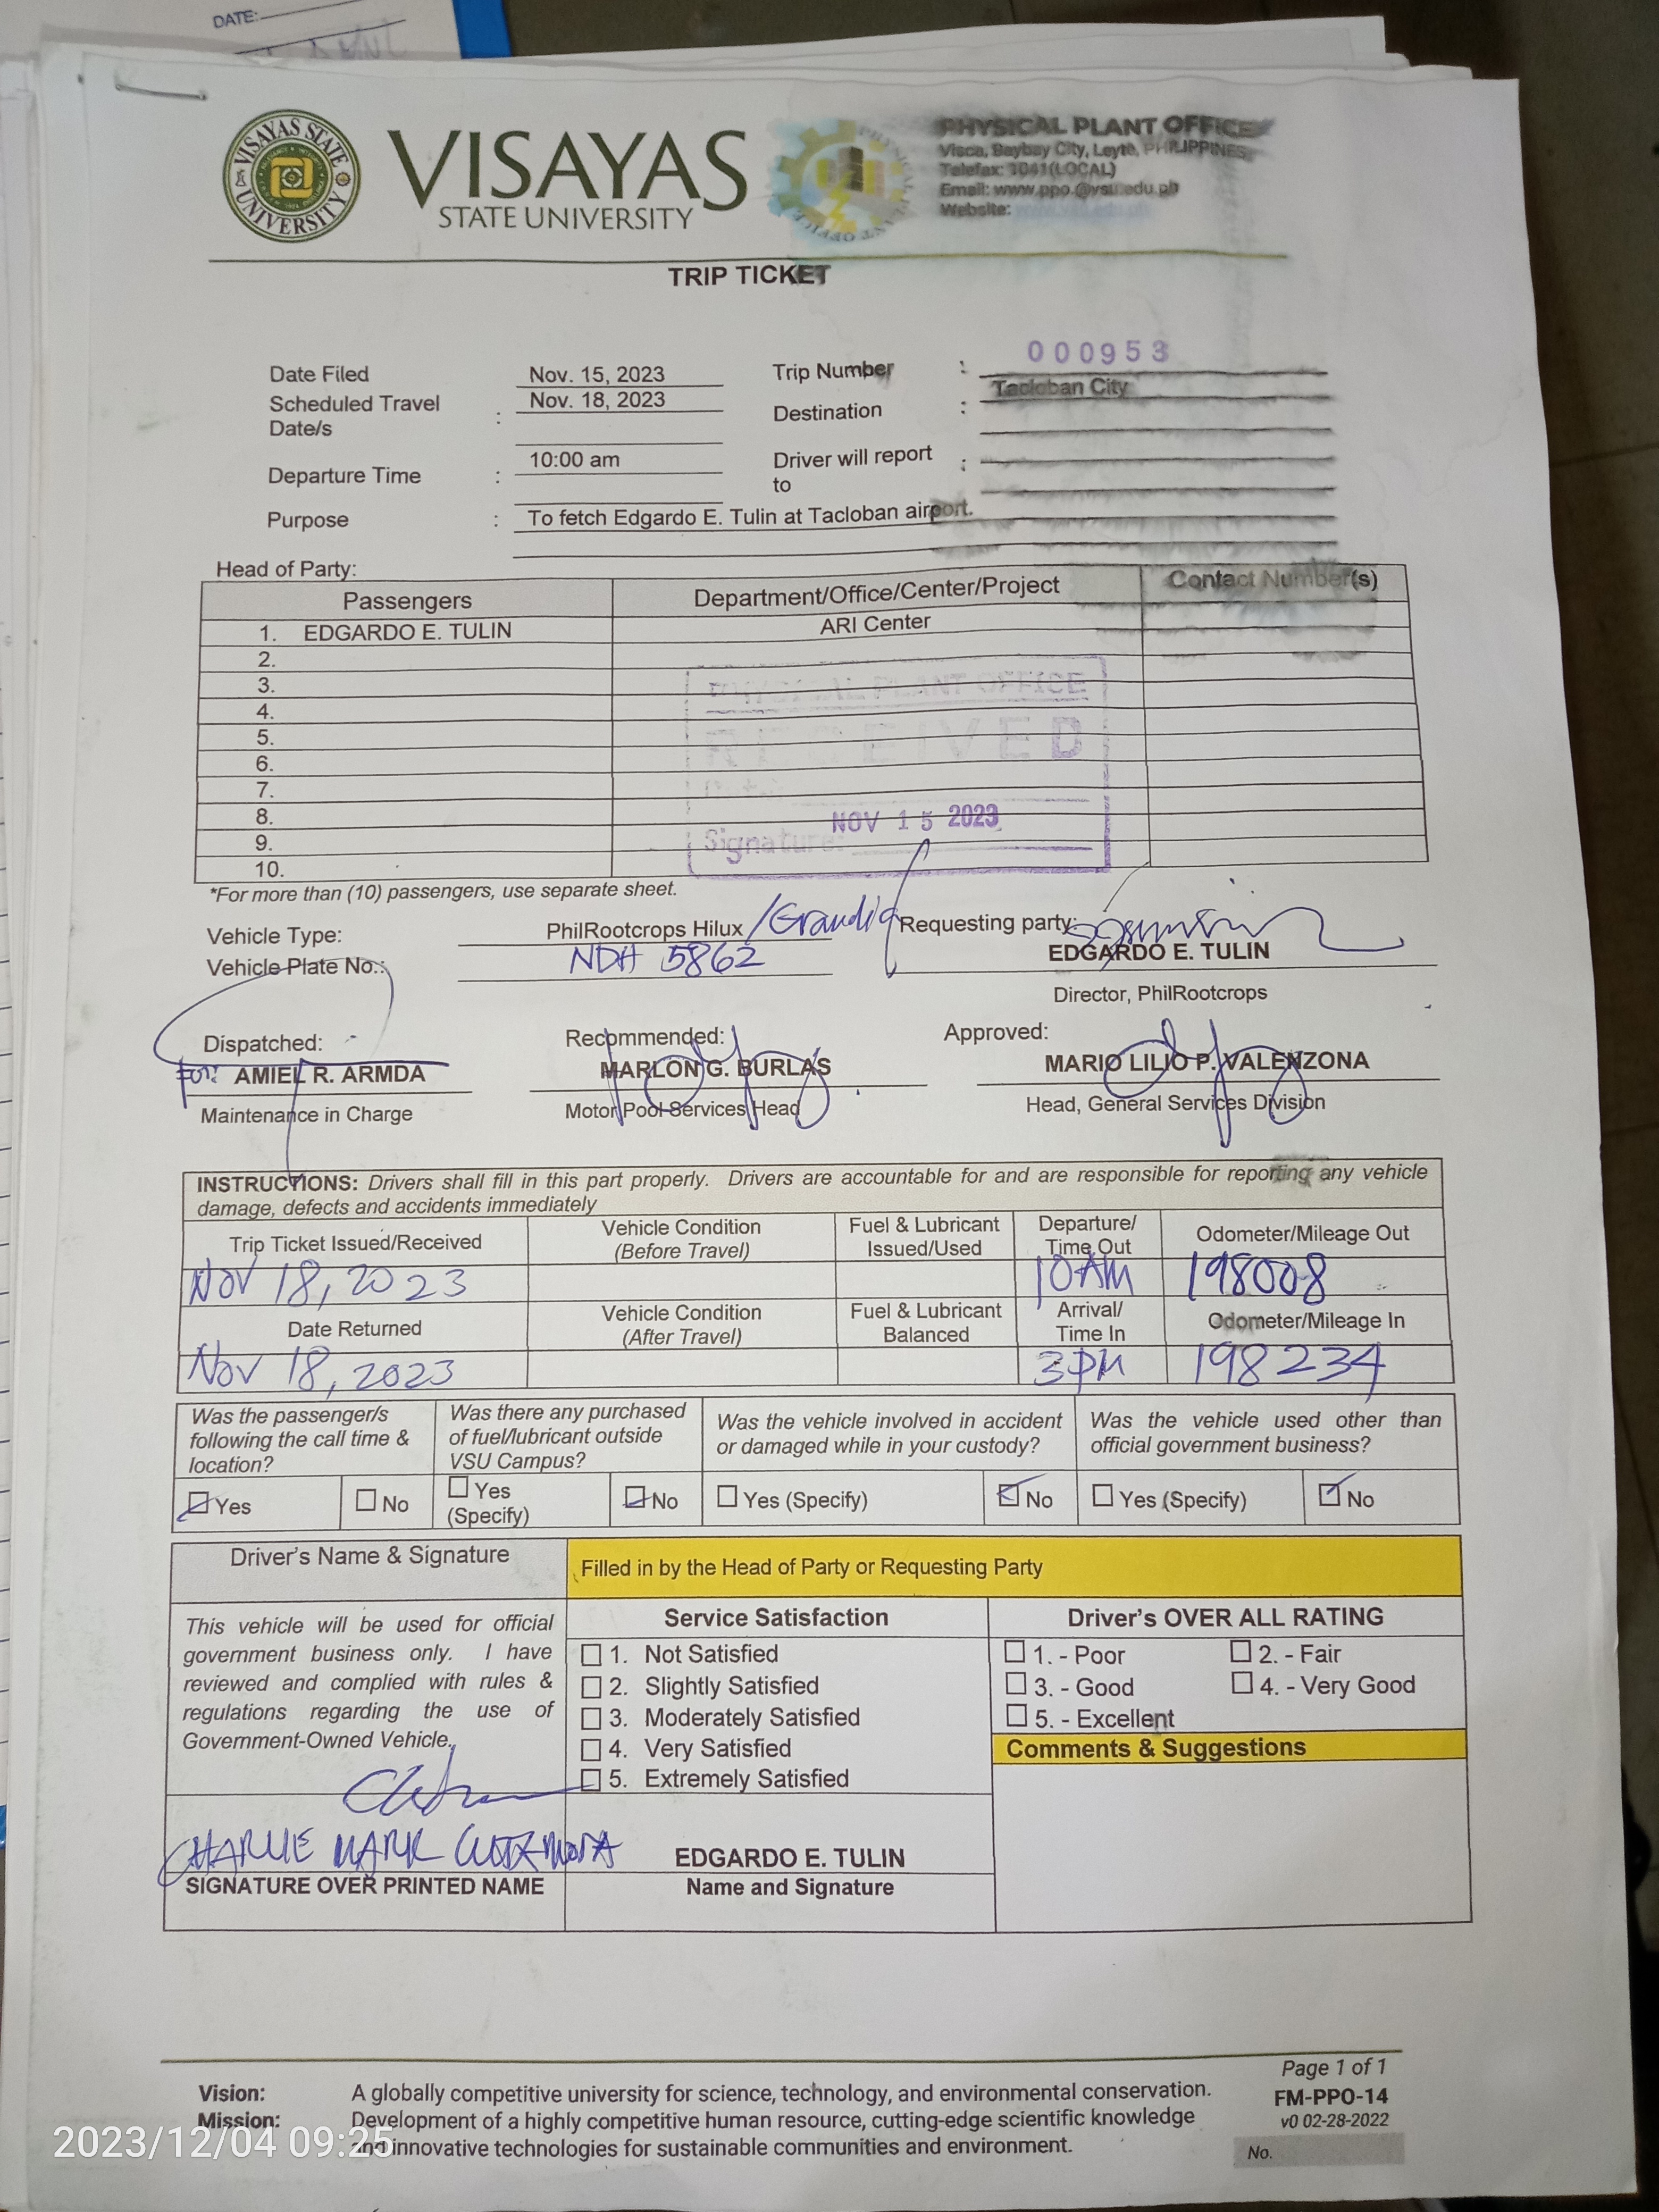 DATE:
VISAYAS STATE UNIVERSITY
VISAYAS
STATE UNIVERSITY
PHYSICAL PLANT OFFICE
Visca, Baybay City, Leyte, PHILIPPINES
Telefax: 1041(LOCAL)
Email: www.ppo.@vsu.edu.ph
Website:
TRIP TICKET
000953
Date Filed Nov. 15, 2023 Trip Number :
Scheduled Travel Date/s : Nov. 18, 2023 Destination : Tacloban City
Departure Time : 10:00 am Driver will report to :
Purpose : To fetch Edgardo E. Tulin at Tacloban airport.
Head of Party:
Passengers Department/Office/Center/Project Contact Number(s)
1. EDGARDO E. TULIN ARI Center
2.
3.
4.
5.
6.
7.
8.
9.
10.
PHYSICAL PLANT OFFICE
RECEIVED
NOV 15 2023
Signature:
*For more than (10) passengers, use separate sheet.
Vehicle Type: PhilRootcrops Hilux /Grandia Requesting party:
Vehicle Plate No.: NDH 5862 EDGARDO E. TULIN
Director, PhilRootcrops
Dispatched: Recommended: Approved:
FOR: AMIEL R. ARMDA MARLON G. BURLAS MARIO LILIO P. VALENZONA
Maintenance in Charge Motor Pool Services Head Head, General Services Division
INSTRUCTIONS: Drivers shall fill in this part properly. Drivers are accountable for and are responsible for reporting any vehicle
damage, defects and accidents immediately
Trip Ticket Issued/Received Vehicle Condition (Before Travel) Fuel & Lubricant Issued/Used Departure/ Time Out Odometer/Mileage Out
Nov 18, 2023 10AM 198008
Date Returned Vehicle Condition (After Travel) Fuel & Lubricant Balanced Arrival/ Time In Odometer/Mileage In
Nov 18, 2023 3PM 198234
Was the passenger/s following the call time & location? Was there any purchased of fuel/lubricant outside VSU Campus? Was the vehicle involved in accident or damaged while in your custody? Was the vehicle used other than official government business?
Yes No Yes (Specify) No Yes (Specify) No Yes (Specify) No
Driver's Name & Signature Filled in by the Head of Party or Requesting Party
This vehicle will be used for official
government business only. I have
reviewed and complied with rules &
regulations regarding the use of
Government-Owned Vehicle.
Service Satisfaction
1. Not Satisfied
2. Slightly Satisfied
3. Moderately Satisfied
4. Very Satisfied
5. Extremely Satisfied
Driver's OVER ALL RATING
1. - Poor 2. - Fair
3. - Good 4. - Very Good
5. - Excellent
Comments & Suggestions
CHARLIE MARK EDGARDO E. TULIN
SIGNATURE OVER PRINTED NAME Name and Signature
Page 1 of 1
Vision: A globally competitive university for science, technology, and environmental conservation. FM-PPO-14
Mission: Development of a highly competitive human resource, cutting-edge scientific knowledge v0 02-28-2022
and innovative technologies for sustainable communities and environment. No.
2023/12/04 09:25